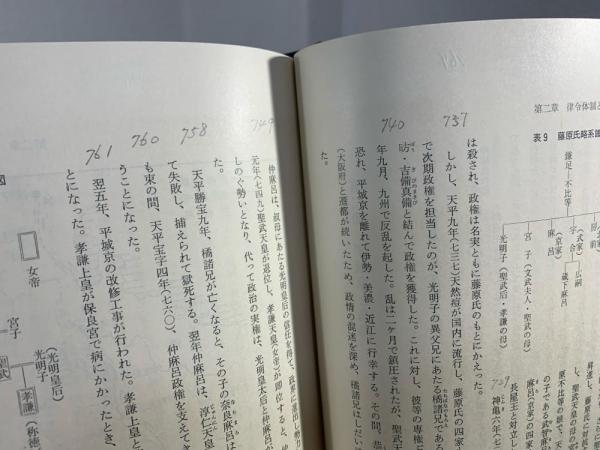 第二章 律令体制と
表9 藤原氏略系譜
鎌足―不比等
房前
(式家)
宇合
広嗣
(京家)
麻呂
蔵下麻呂
宮子(文武夫人・聖武の母)
光明子(聖武后・孝謙の母)
729
長屋王と対立し
神亀六年(七
737
740
は殺され、政権は名実ともに藤原氏のもとにかえった。
しかし、天平九年(七三七)天然痘が国内に流行し、藤原氏の四家
で次期政権を担当したのが、光明子の異父兄にあたる橘諸兄であ
昉・吉備真備と結んで政権を獲得した。これに対し、彼等の専権
年九月、九州で反乱を起した。乱は二ヶ月で鎮圧されたが、聖武天
恐れ、平城京を離れて伊勢・美濃・近江に行幸する。その間、恭
(大阪府)と遷都が続いたため、政情の混迷を深め、橘諸兄はしだい
た。
749
758
760
761
仲麻呂は、叔母にあたる光明皇后の信任を得て、政界に進出し
元年(七四九)聖武天皇が退位し、孝謙天皇(女帝)が即位すると、仲
しのぐ勢いとなり、代って政治の実権は、光明皇太后と仲麻呂
た。
天平勝宝九年、橘諸兄が亡くなると、その子の奈良麻呂は
て失敗し、捕えられて獄死する。翌年仲麻呂は、淳仁天皇
も束の間、天平宝字四年(七六〇)、仲麻呂政権を支えてき
うことになった。
翌五年、平城京の改修工事が行われた。孝謙上皇と
とになった。孝謙上皇が保良宮で病にかかったとき、
図
女帝
宮子
(光明皇后)
光明子
孝謙(称徳